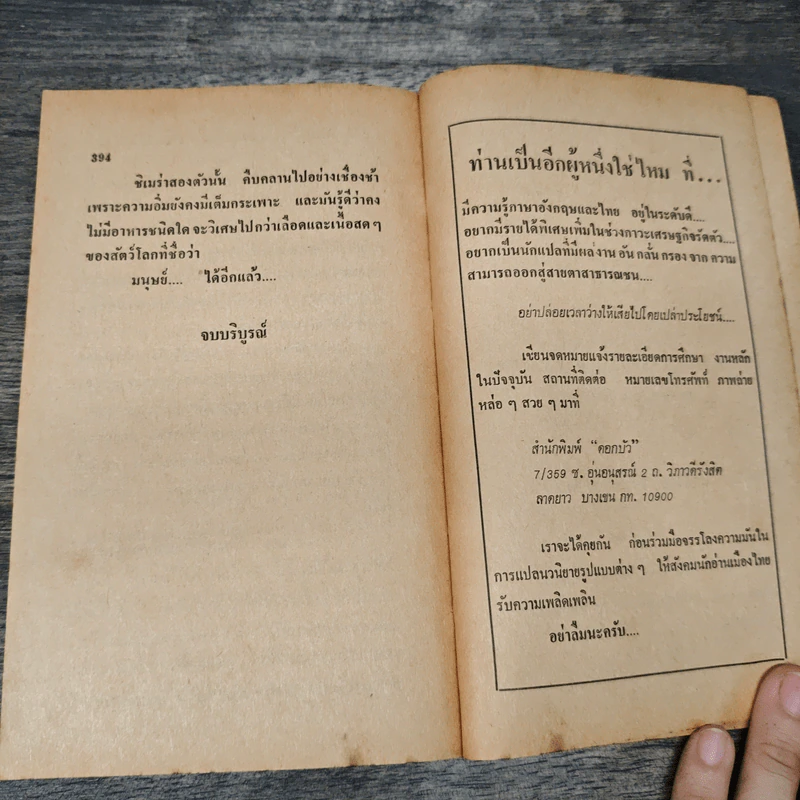 394
ชิเมร่าสองตัวนั้น คืบคลานไปอย่างเชื่องช้า
เพราะความอิ่มยังคงมีเต็มกระเพาะ และมันรู้ดีว่าคง
ไม่มีอาหารชนิดใด จะวิเศษไปกว่าเลือดและเนื้อสด ๆ
ของสัตว์โลกที่ชื่อว่า
มนุษย์.... ได้อีกแล้ว....
จบบริบูรณ์
ท่านเป็นอีกผู้หนึ่งใช่ไหม ที่...
มีความรู้ภาษาอังกฤษและไทย อยู่ในระดับดี....
อยากมีรายได้พิเศษเพิ่มในช่วงภาวะเศรษฐกิจรัดตัว....
อยากเป็นนักแปลที่มีผลงาน อัน กลั่น กรอง จาก ความ
สามารถออกสู่สายตาสาธารณชน....
อย่าปล่อยเวลาว่างให้เสียไปโดยเปล่าประโยชน์....
เขียนจดหมายแจ้งรายละเอียดการศึกษา งานหลัก
ในปัจจุบัน สถานที่ติดต่อ หมายเลขโทรศัพท์ ภาพถ่าย
หล่อ ๆ สวย ๆ มาที่
สำนักพิมพ์ "ดอกบัว"
7/359 ซ. อุ่นอนุสรณ์ 2 ถ. วิภาวดีรังสิต
ลาดยาว บางเขน กท. 10900
เราจะได้คุยกัน ก่อนร่วมมือจรรโลงความมันใน
การแปลนวนิยายรูปแบบต่าง ๆ ให้สังคมนักอ่านเมืองไทย
รับความเพลิดเพลิน
อย่าลืมนะครับ....